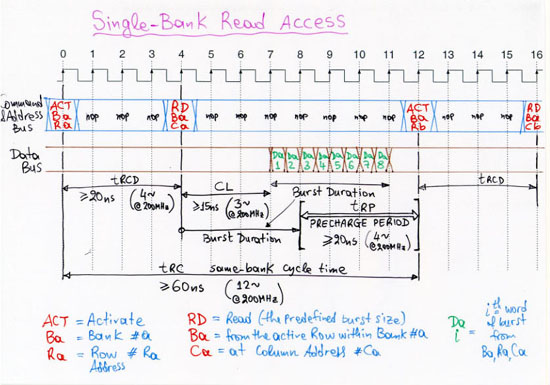 Single-Bank Read Access
0 1 2 3 4 5 6 7 8 9 10 11 12 13 14 15 16
Command
&Address
Bus
ACT
Ba
Ra
nop nop nop
RD
Ba
Ca
nop nop nop nop nop nop nop
ACT
Ba
Rb
nop nop nop
RD
Ba
Cb
Data
Bus
Da
1
Da
2
Da
3
Da
4
Da
5
Da
6
Da
7
Da
8
tRCD
≥20ns (4~
@200MHz)
CL
≥15ns (3~
@200MHz)
Burst Duration
tRCD
Burst Duration
tRP
PRECHARGE PERIOD
≥20ns (4~
@200MHz)
tRC same-bank cycle time
≥60ns (12~
@200MHz)
ACT = Activate
Ba = Bank #a
Ra = Row # Ra
Address
RD = Read (the predefined burst size)
Ba = from the active Row within Bank #a
Ca = at Column Address #Ca
Da
i
=
ith word
of burst
from
Ba, Ra, Ca